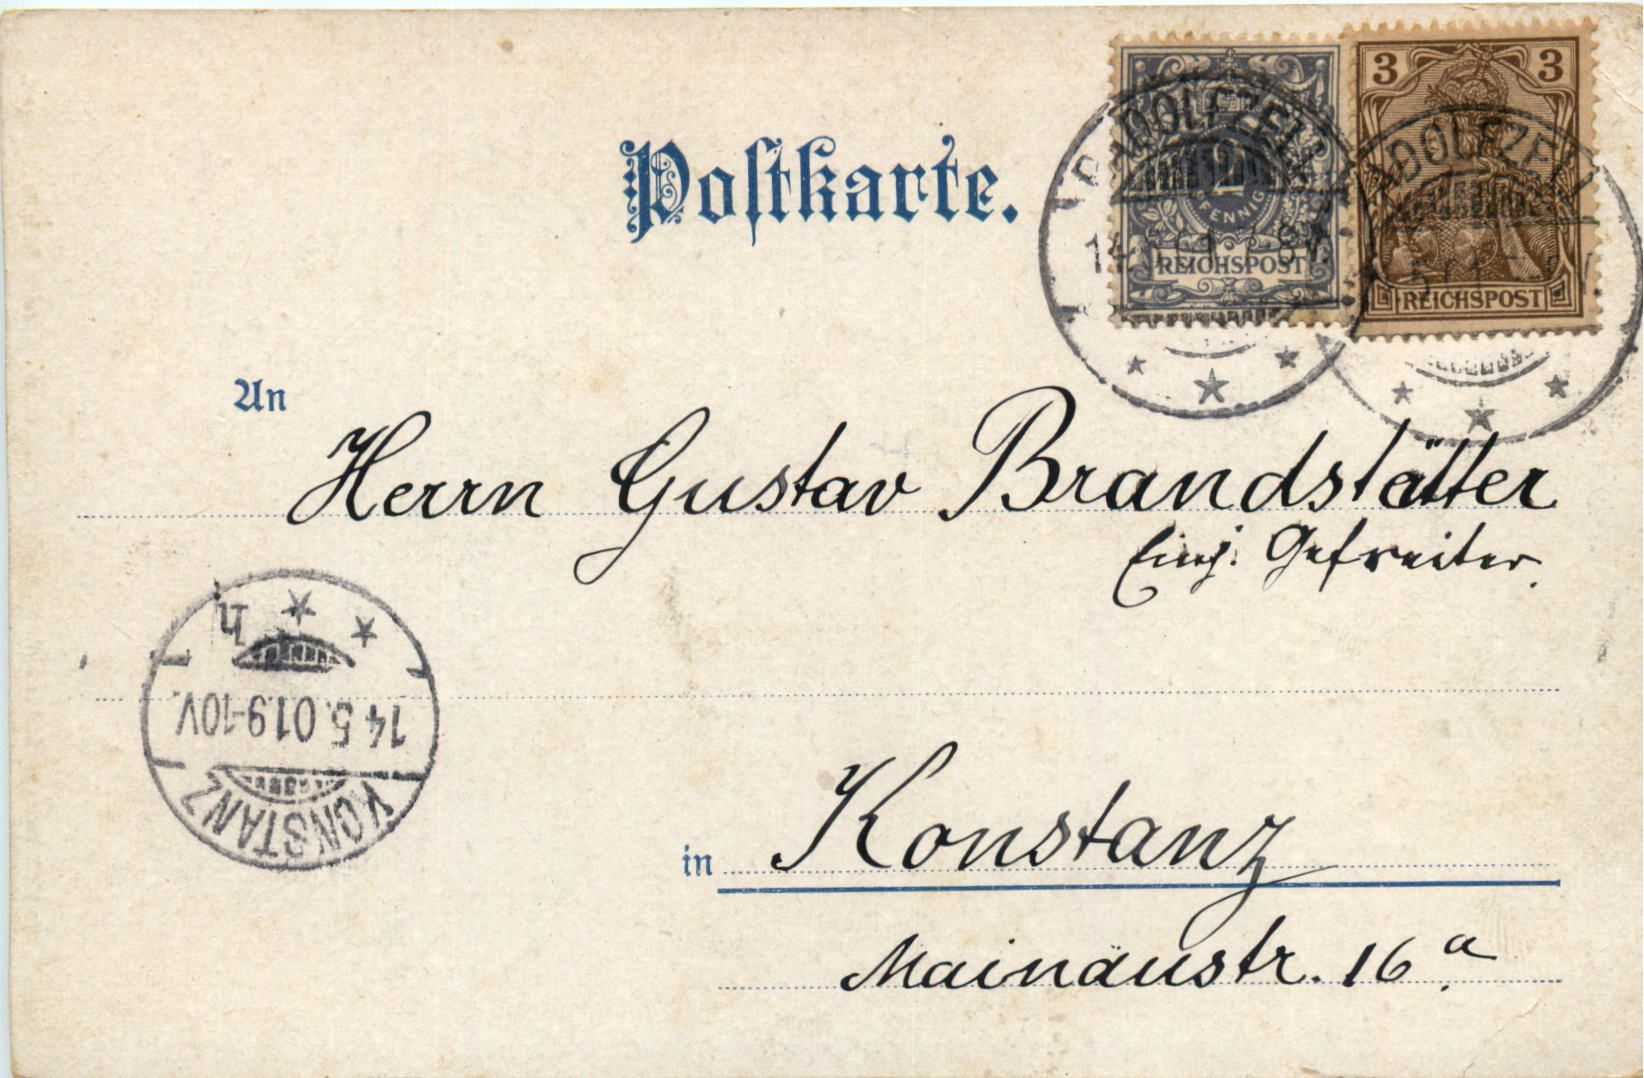 Postkarte.
3 3
2
PFENNIG
REICHSPOST
REICHSPOST
RADOLFZELL
RADOLFZELL
An
Herrn Gustav Brandstätter
Einj. Gefreiter.
KONSTANZ
14.5.01.9-10V.
h
in Konstanz
Mainaustr. 16 a.